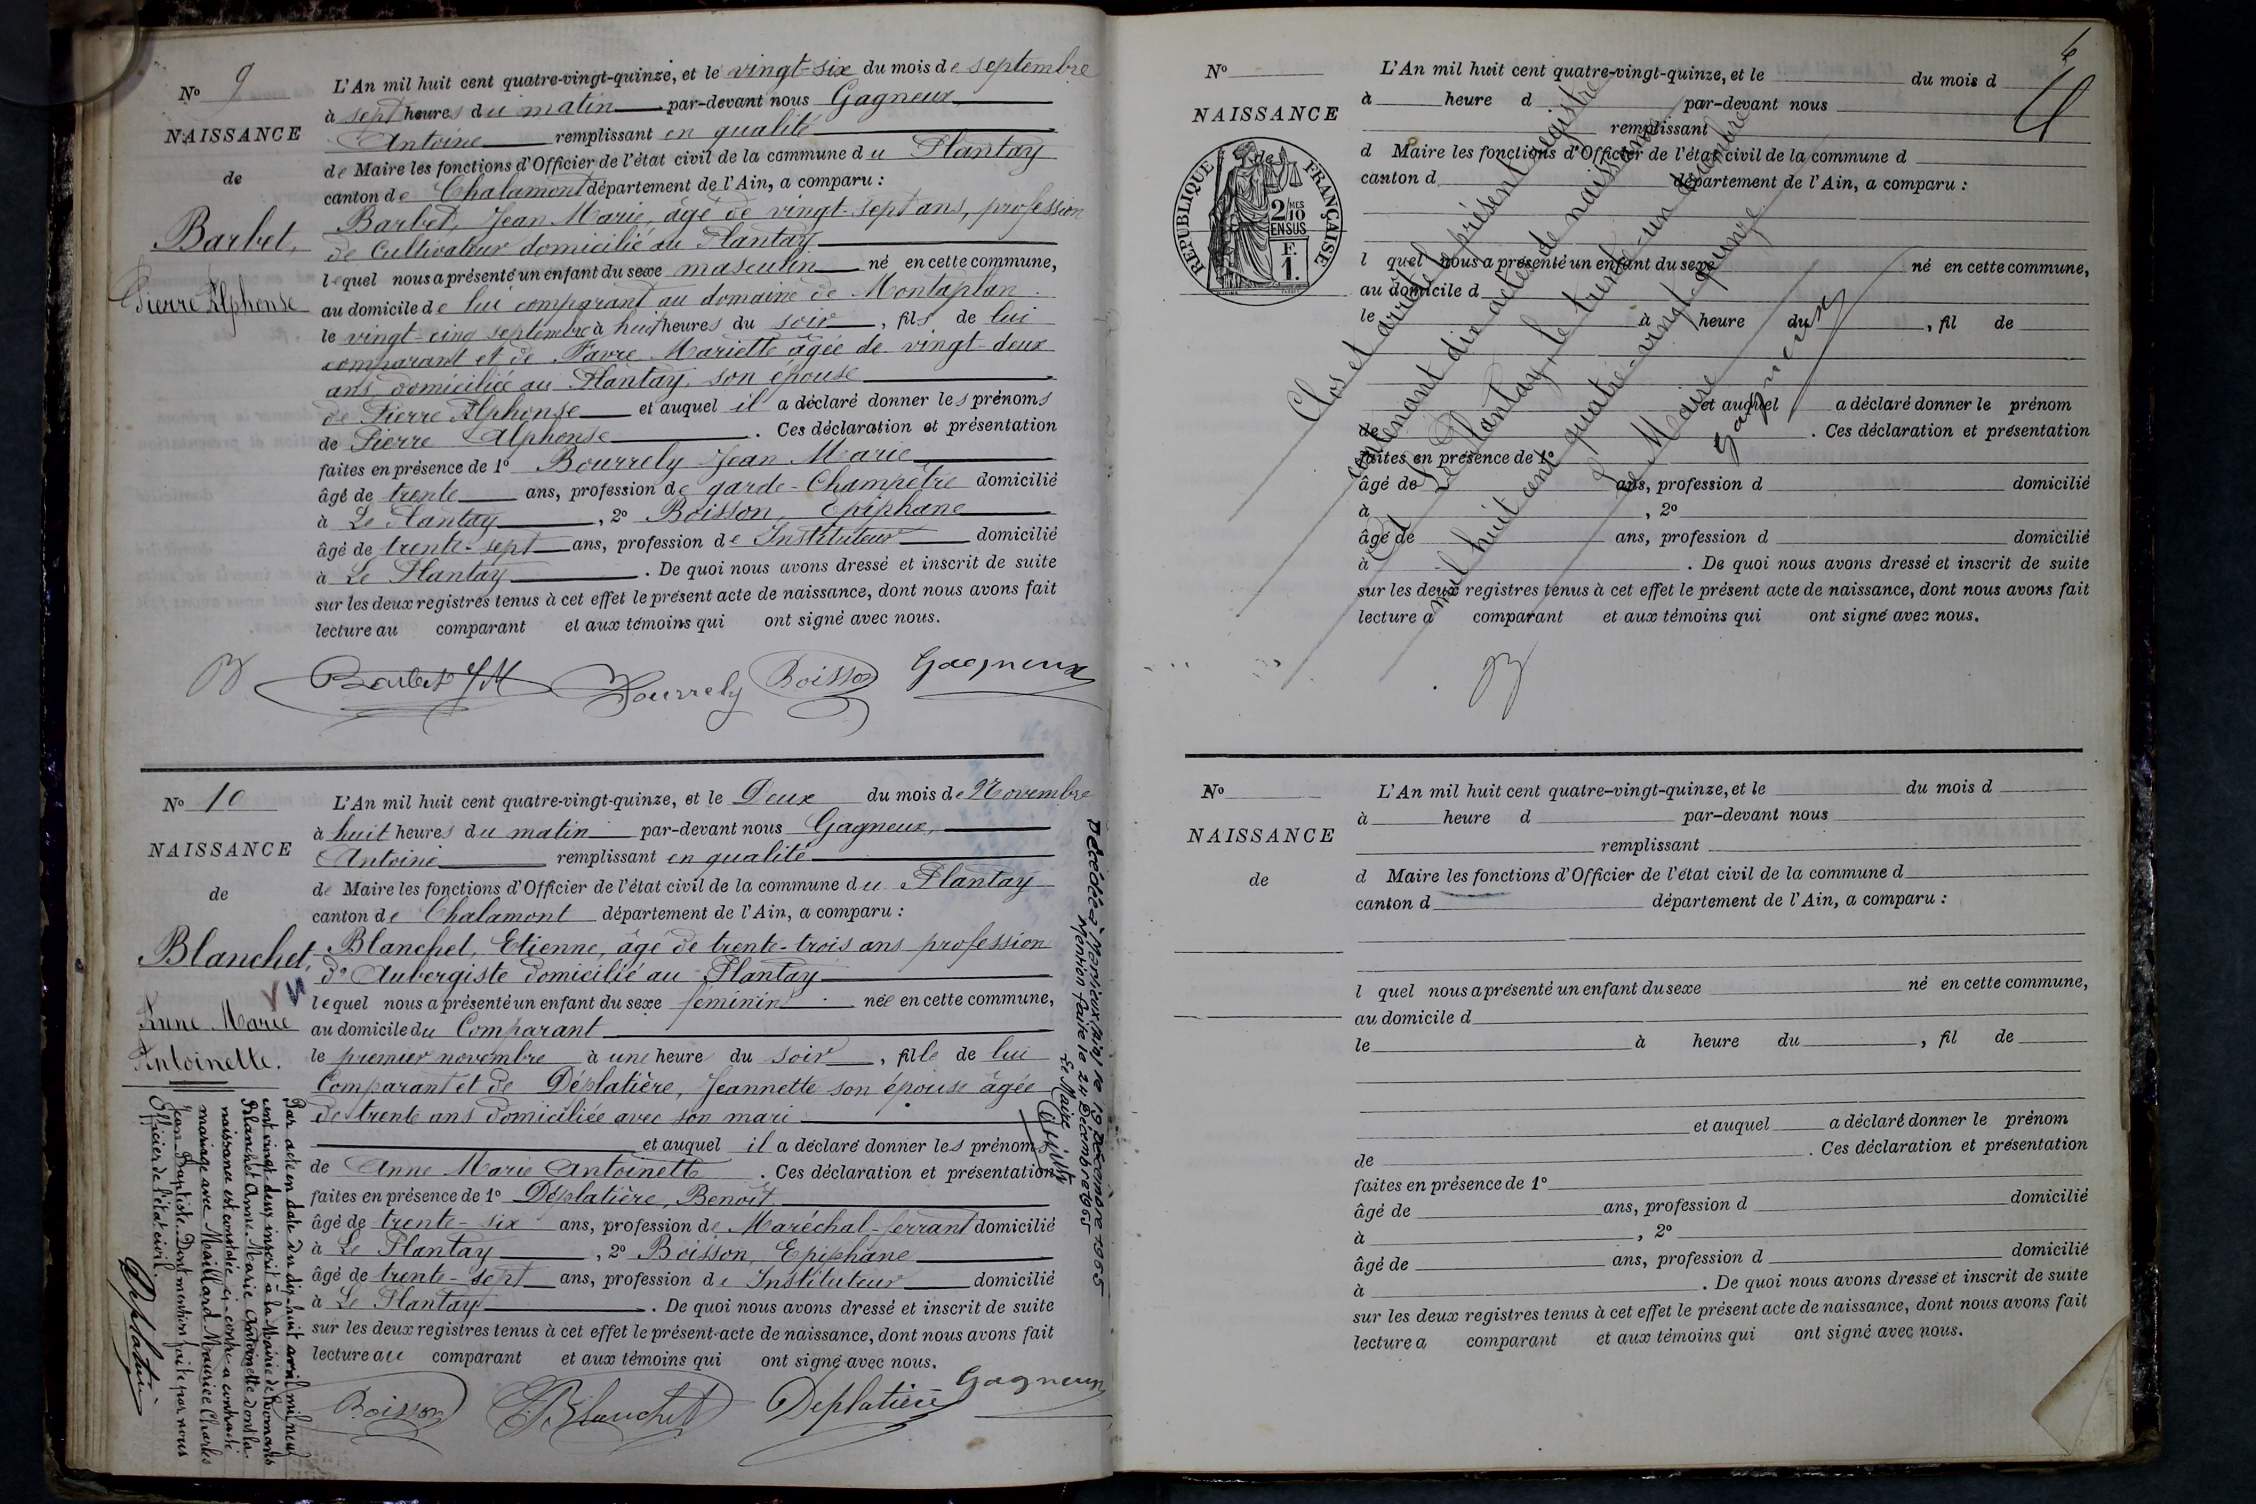 N° 9
NAISSANCE
de
Barbet,
Pierre Alphonse
L'An mil huit cent quatre-vingt-quinze, et le vingt-six du mois de septembre
à sept heures du matin par-devant nous Gagneux
Antoine remplissant en qualité
de Maire les fonctions d'Officier de l'état civil de la commune du Plantay
canton de Chalamont département de l'Ain, a comparu :
Barbet, Jean Marie, âgé de vingt-sept ans, profession
de Cultivateur domicilié au Plantay
lequel nous a présenté un enfant du sexe masculin né en cette commune,
au domicile de lui comparant au domaine de Montaplan
le vingt-cinq septembre à huit heures du soir, fils de lui
comparant et de Favre Mariette âgée de vingt-deux
ans domiciliée au Plantay, son épouse
de Pierre Alphonse et auquel il a déclaré donner les prénoms
de Pierre Alphonse. Ces déclaration et présentation
faites en présence de 1° Bourrely Jean Marie
âgé de trente ans, profession de garde-Champêtre domicilié
à Le Plantay, 2° Boisson, Epiphane
âgé de trente-sept ans, profession de Instituteur domicilié
à Le Plantay. De quoi nous avons dressé et inscrit de suite
sur les deux registres tenus à cet effet le présent acte de naissance, dont nous avons fait
lecture au comparant et aux témoins qui ont signé avec nous.
Barbet JM Bourrely Boisson Gagneux
N° 10
NAISSANCE
de
Blanchet,
Anne Marie
Antoinette.
L'An mil huit cent quatre-vingt-quinze, et le Deux du mois de Novembre
à huit heures du matin par-devant nous Gagneux,
Antoine remplissant en qualité
de Maire les fonctions d'Officier de l'état civil de la commune du Plantay
canton de Chalamont département de l'Ain, a comparu :
Blanchet, Etienne, âgé de trente-trois ans profession
d'Aubergiste domicilié au Plantay
lequel nous a présenté un enfant du sexe féminin née en cette commune,
au domicile du Comparant
le premier novembre à une heure du soir, fille de lui
Comparant et de Déplatière, Jeannette son épouse âgée
de trente ans domiciliée avec son mari
et auquel il a déclaré donner les prénoms
de Anne Marie Antoinette. Ces déclaration et présentation
faites en présence de 1° Déplatière, Benoît
âgé de trente-six ans, profession de Maréchal-ferrant domicilié
à Le Plantay, 2° Boisson, Epiphane
âgé de trente-sept ans, profession de Instituteur domicilié
à Le Plantay. De quoi nous avons dressé et inscrit de suite
sur les deux registres tenus à cet effet le présent acte de naissance, dont nous avons fait
lecture au comparant et aux témoins qui ont signé avec nous.
Boisson E. Blanchet Deplatière Gagneux
Par acte en date du dix-huit avril mil neuf
cent vingt-deux inscrit à la Mairie de Romans
Blanchet Anne Marie Antoinette dont la
naissance est constatée ci-contre a contracté
mariage avec Maillard Maurice Charles
Jean-Baptiste. Dont mention faite par nous
Officier de l'état civil.
Deplatière
Décédée à le 19 Décembre 1965
Mention faite le 24 Décembre 1965
Le Maire
N°
NAISSANCE
de
REPUBLIQUE FRANÇAISE
2/10 EN SUS
F. 1.
L'An mil huit cent quatre-vingt-quinze, et le du mois d
à heure d par-devant nous
remplissant
d Maire les fonctions d'Officier de l'état civil de la commune d
canton d département de l'Ain, a comparu :
l quel nous a présenté un enfant du sexe né en cette commune,
au domicile d
le à heure du , fil de
et auquel a déclaré donner le prénom
de . Ces déclaration et présentation
faites en présence de 1°
âgé de ans, profession d domicilié
à , 2°
âgé de ans, profession d domicilié
à . De quoi nous avons dressé et inscrit de suite
sur les deux registres tenus à cet effet le présent acte de naissance, dont nous avons fait
lecture a comparant et aux témoins qui ont signé avec nous.
Clos et arrêté le présent registre
contenant dix actes de naissance
Le Plantay, le trente-un décembre
mil huit cent quatre-vingt-quinze
Le Maire
Gagneux
N°
NAISSANCE
de
L'An mil huit cent quatre-vingt-quinze, et le du mois d
à heure d par-devant nous
remplissant
d Maire les fonctions d'Officier de l'état civil de la commune d
canton d département de l'Ain, a comparu :
l quel nous a présenté un enfant du sexe né en cette commune,
au domicile d
le à heure du , fil de
et auquel a déclaré donner le prénom
de . Ces déclaration et présentation
faites en présence de 1°
âgé de ans, profession d domicilié
à , 2°
âgé de ans, profession d domicilié
à . De quoi nous avons dressé et inscrit de suite
sur les deux registres tenus à cet effet le présent acte de naissance, dont nous avons fait
lecture a comparant et aux témoins qui ont signé avec nous.